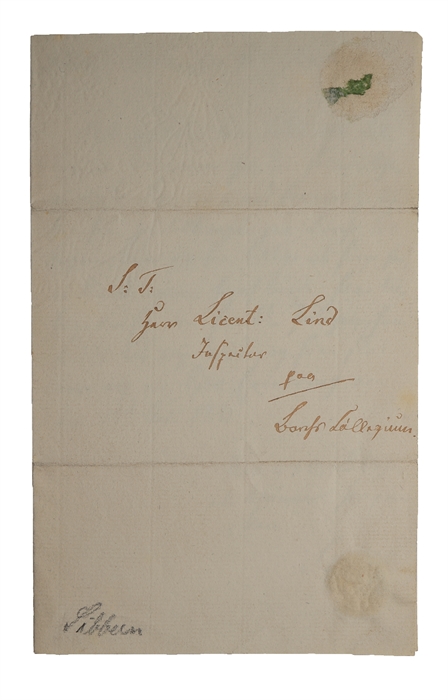 S: T:
Herr Licent: Lind
Inspector
paa
Borchs Collegium.
Sibbern